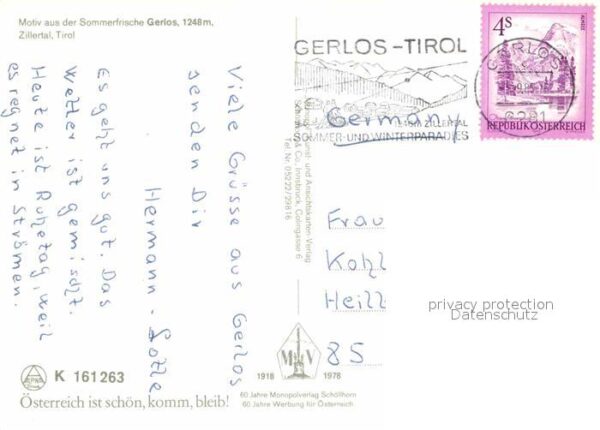 Motiv aus der Sommerfrische Gerlos, 1248m,
Zillertal, Tirol
Viele Grüsse aus Gerlos
senden Dir
Hermann - Lotte
Es geht uns gut. Das
Wetter ist gemischt.
Heute ist Ruhetag, weil
es regnet in Strömen.
GERLOS-TIROL
ZILLERTAL
SOMMER- UND WINTERPARADIES
4S
ALMSEE
REPUBLIK ÖSTERREICH
GERLOS
6281
Germany
Frau
Kohl
Heill
85
privacy protection
Datenschutz
und Ansichtskarten-Verlag
& Co., Innsbruck, Colingasse 6
Tel. Nr. 05222/29816
M V
1918 1978
60 Jahre Monopolverlag Schöllhorn
60 Jahre Werbung für Österreich
K 161263
Österreich ist schön, komm, bleib!